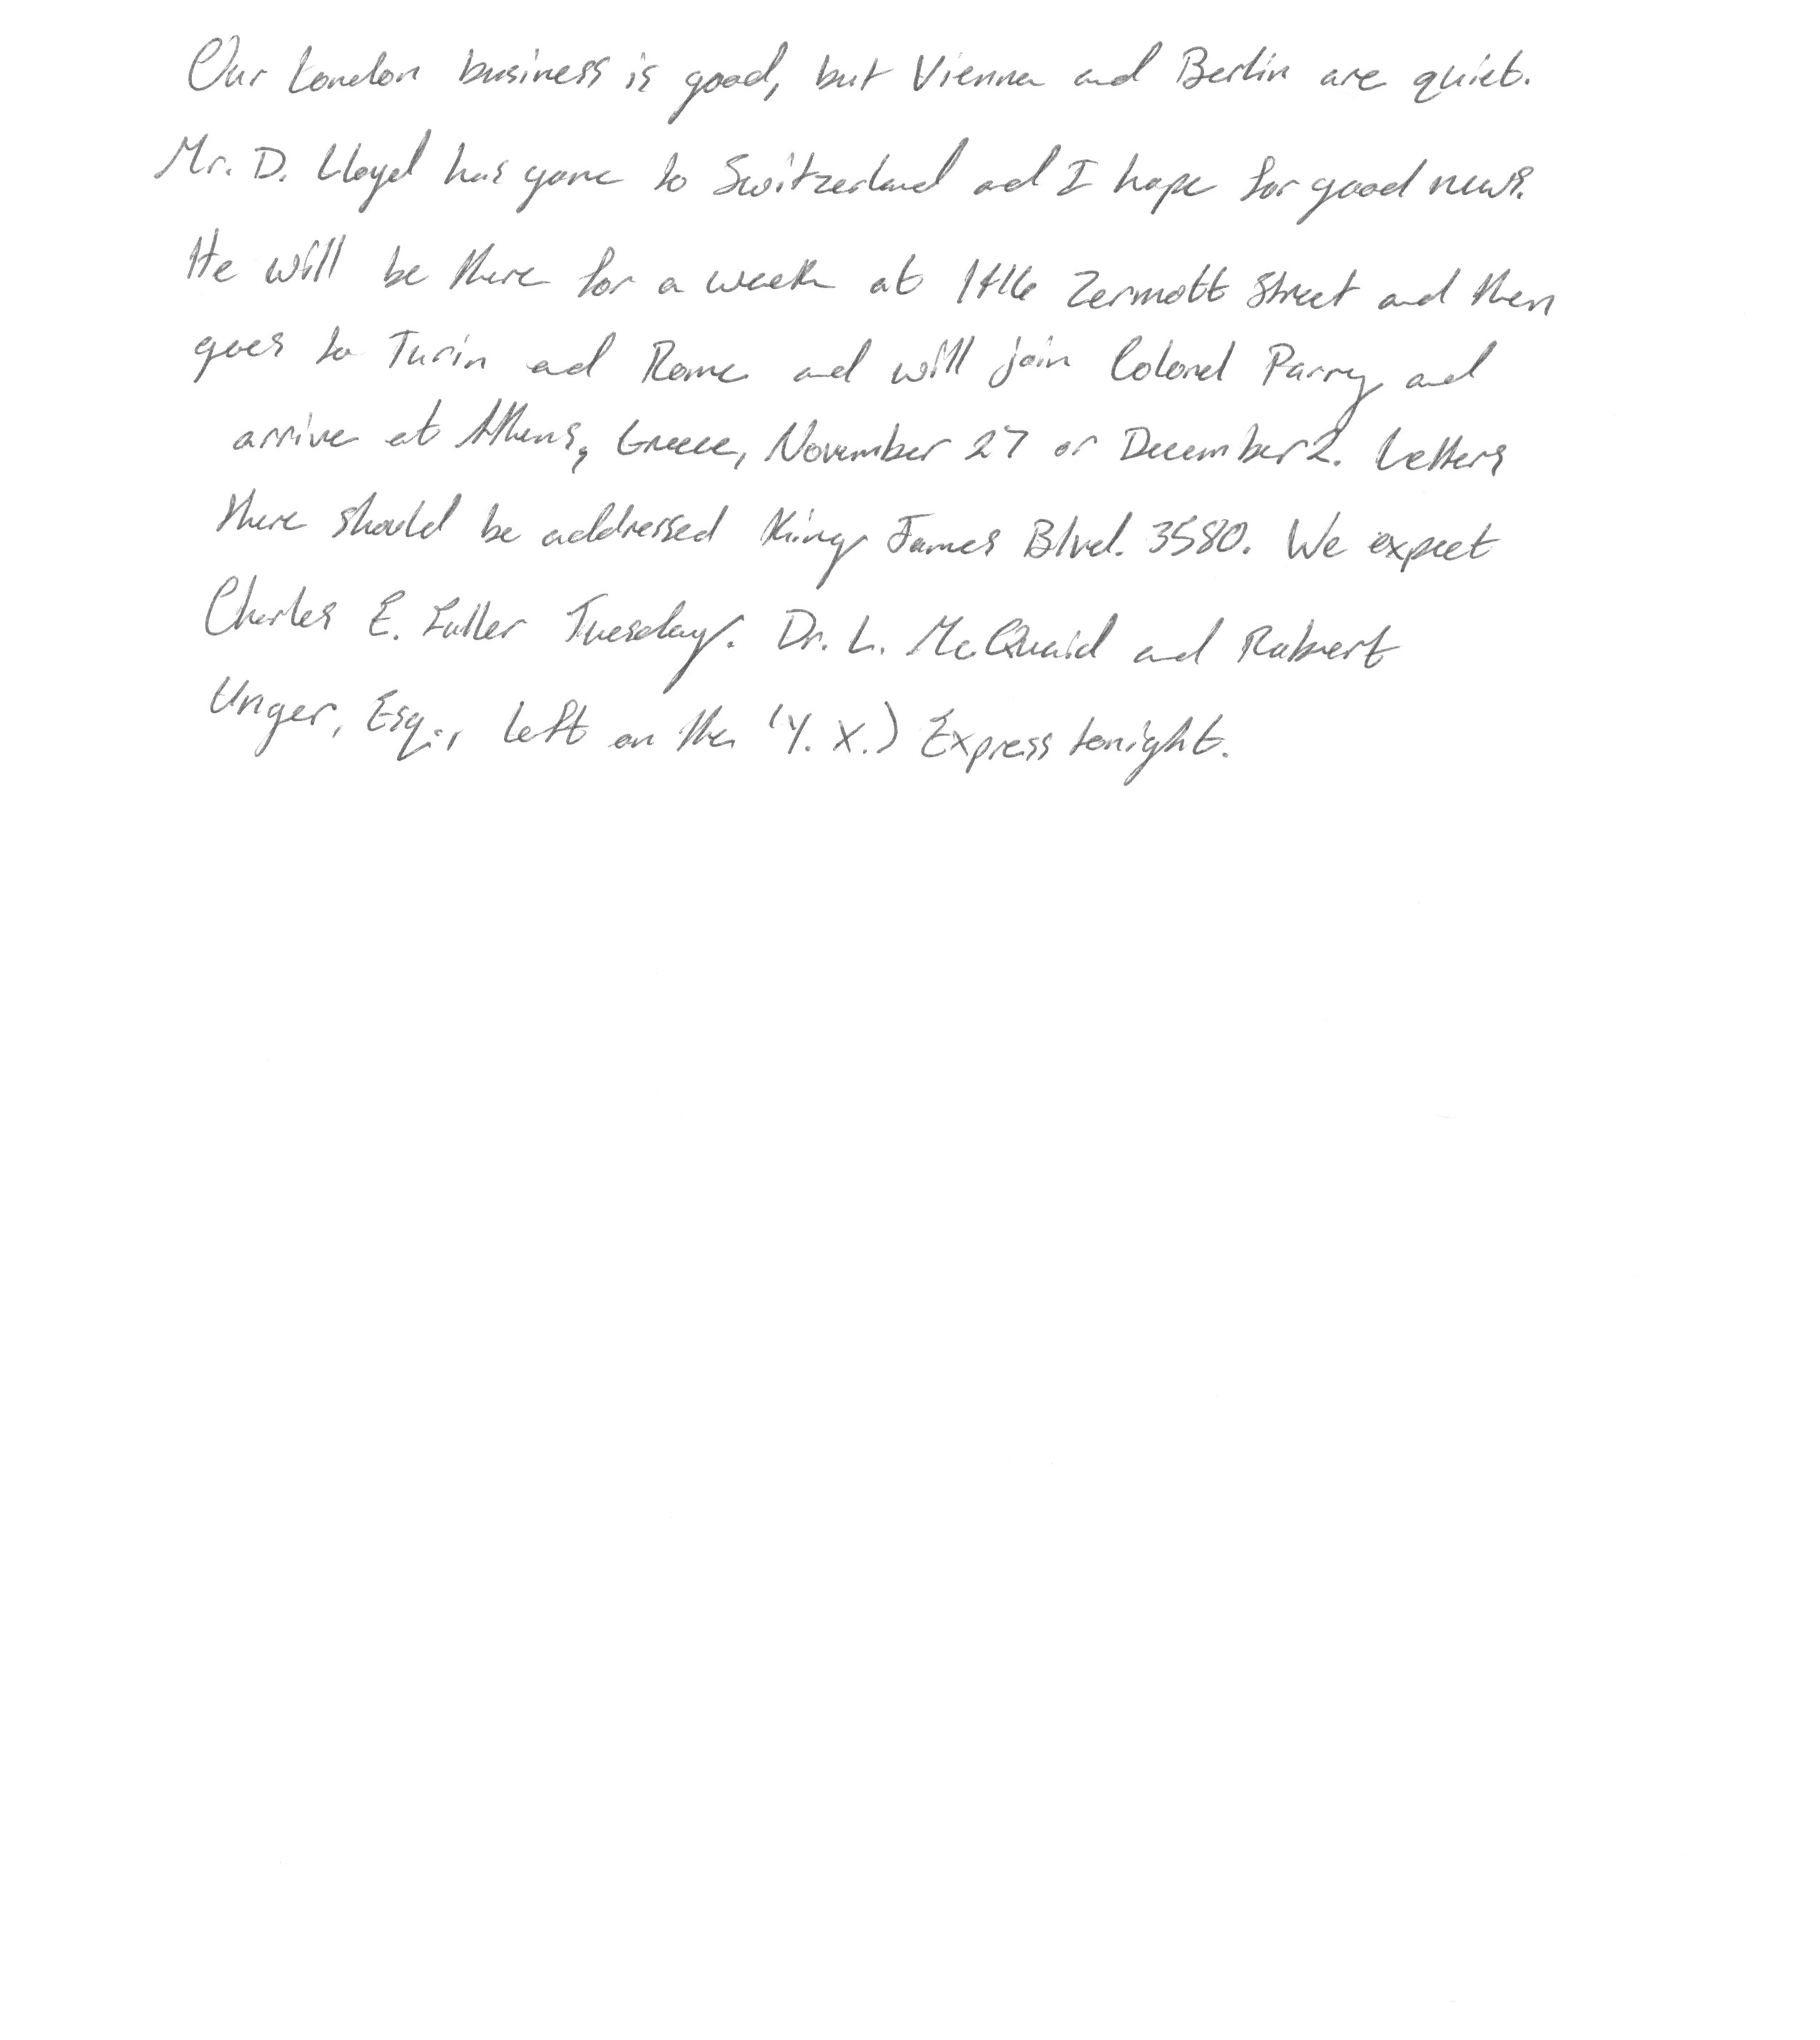 Our London business is good, but Vienna and Berlin are quiet.
Mr. D. Lloyd has gone to Switzerland and I hope for good news.
He will be there for a week at 1416 Zermott Street and then
goes to Turin and Rome and will join Colonel Parry and
arrive at Athens, Greece, November 27 or December 2. Letters
there should be addressed King James Blvd. 3580. We expect
Charles E. Fuller Tuesday. Dr. L. McQuaid and Robert
Unger, Esq., left on the (Y. X.) Express tonight.